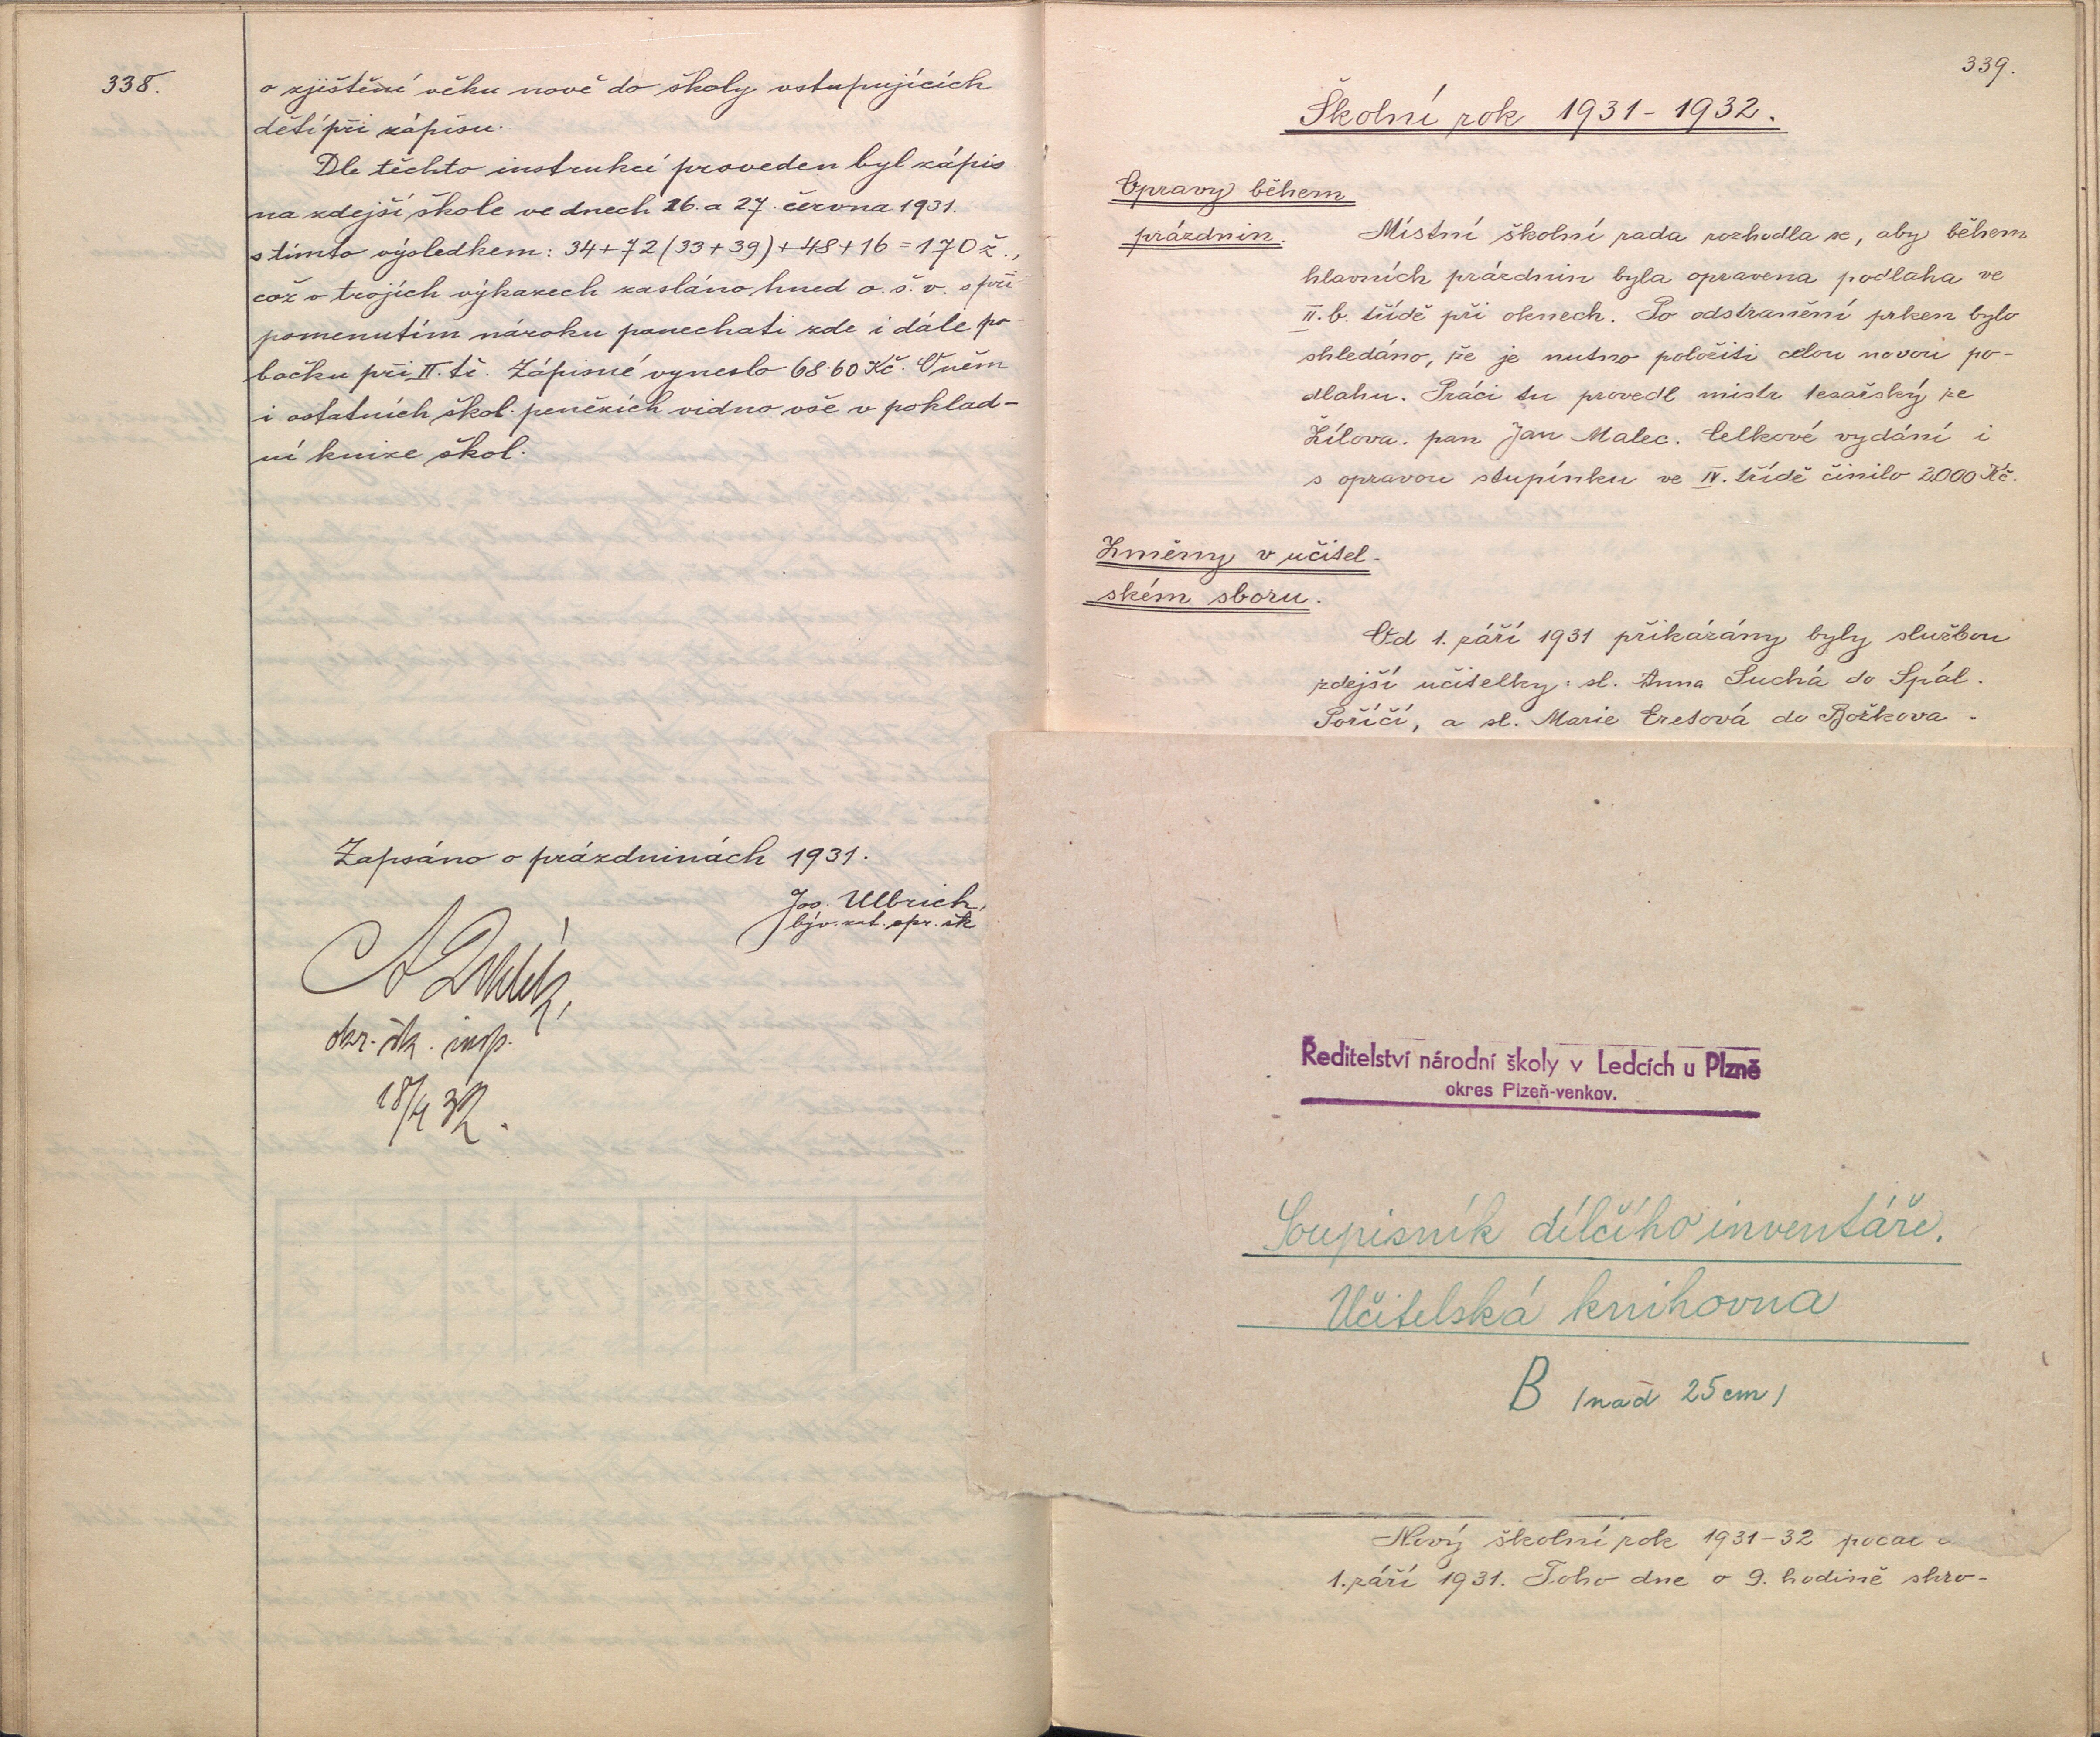 338.
o zjištění věku nově do školy vstupujících
dětí při zápisu.
Dle těchto instrukcí proveden byl zápis
na zdejší škole ve dnech 26. a 27. června 1931.
s tímto výsledkem: 34+72(33+39)+48+16=170 ž.,
což v trojích výkazech zasláno hned o. š. v. s při
pomenutím nároku ponechati zde i dále po
bočku při II. tř. Zápisné vyneslo 68·60 Kč. O něm
i ostatních škol. penězích vidno vše v poklad-
ní knize škol.
Zapsáno o prázdninách 1931.
Jos. Ulbrich,
býv. zat. spr. šk
okr. šk. insp.
18/4 32.
339.
Školní rok 1931-1932.
Opravy během
prázdnin.
Místní školní rada rozhodla se, aby během
hlavních prázdnin byla opravena podlaha ve
II. b. třídě při oknech. Po odstranění prken bylo
shledáno, že je nutno položiti celou novou po-
dlahu. Práci tu provedl mistr tesařský ze
Žílova. pan Jan Malec. Celkové vydání i
s opravou stupínku ve IV. třídě činilo 2000 Kč.
Změny v učitel-
ském sboru.
Od 1. září 1931 přikázány byly službou
zdejší učitelky: sl. Anna Suchá do Spál.
Poříčí, a sl. Marie Eretová do Božkova.
Ředitelství národní školy v Ledcích u Plzně
okres Plzeň-venkov.
Soupisník dílčího inventáře.
Učitelská knihovna
B (nad 25 cm)
Nový školní rok 1931-32
1. září 1931. Toho dne o 9. hodině shro-